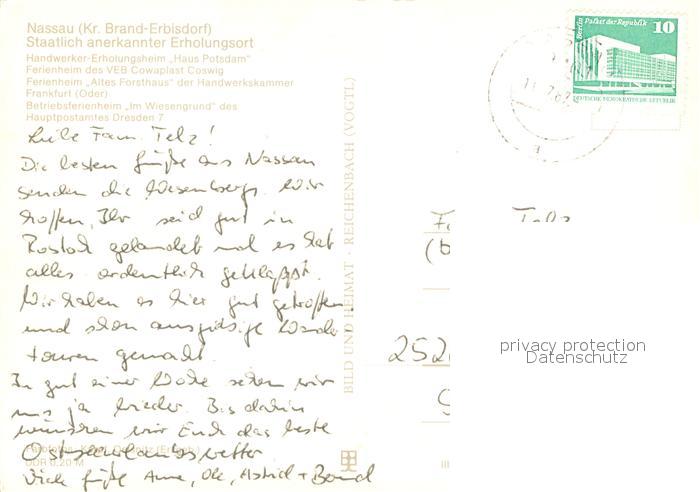 Nassau (Kr. Brand-Erbisdorf)
Staatlich anerkannter Erholungsort
Handwerker-Erholungsheim „Haus Potsdam"
Ferienheim des VEB Cowaplast Coswig
Ferienheim „Altes Forsthaus" der Handwerkskammer
Frankfurt (Oder)
Betriebsferienheim „Im Wiesengrund" des
Hauptpostamtes Dresden 7
Liebe Fam. Telz!
Die besten Grüße aus Nassau
senden die Wesenbergs. Wir
hoffen, Ihr seid gut in
Rostock gelandet und es hat
alles ordentlich geklappt.
Wir haben es hier gut getroffen
und schon ausgiebige Wander
touren gemacht.
In gut einer Woche sehen wir
uns ja wieder. Bis dahin
wünschen wir Euch das beste
Ostseeurlaubswetter
Viele Grüße Anne, Ole, Astrid + Bernd
DDR 0,20 M
BILD UND HEIMAT · REICHENBACH (VOGTL)
III
Berlin Palast der Republik
10
DEUTSCHE DEMOKRATISCHE REPUBLIK
252
privacy protection
Datenschutz